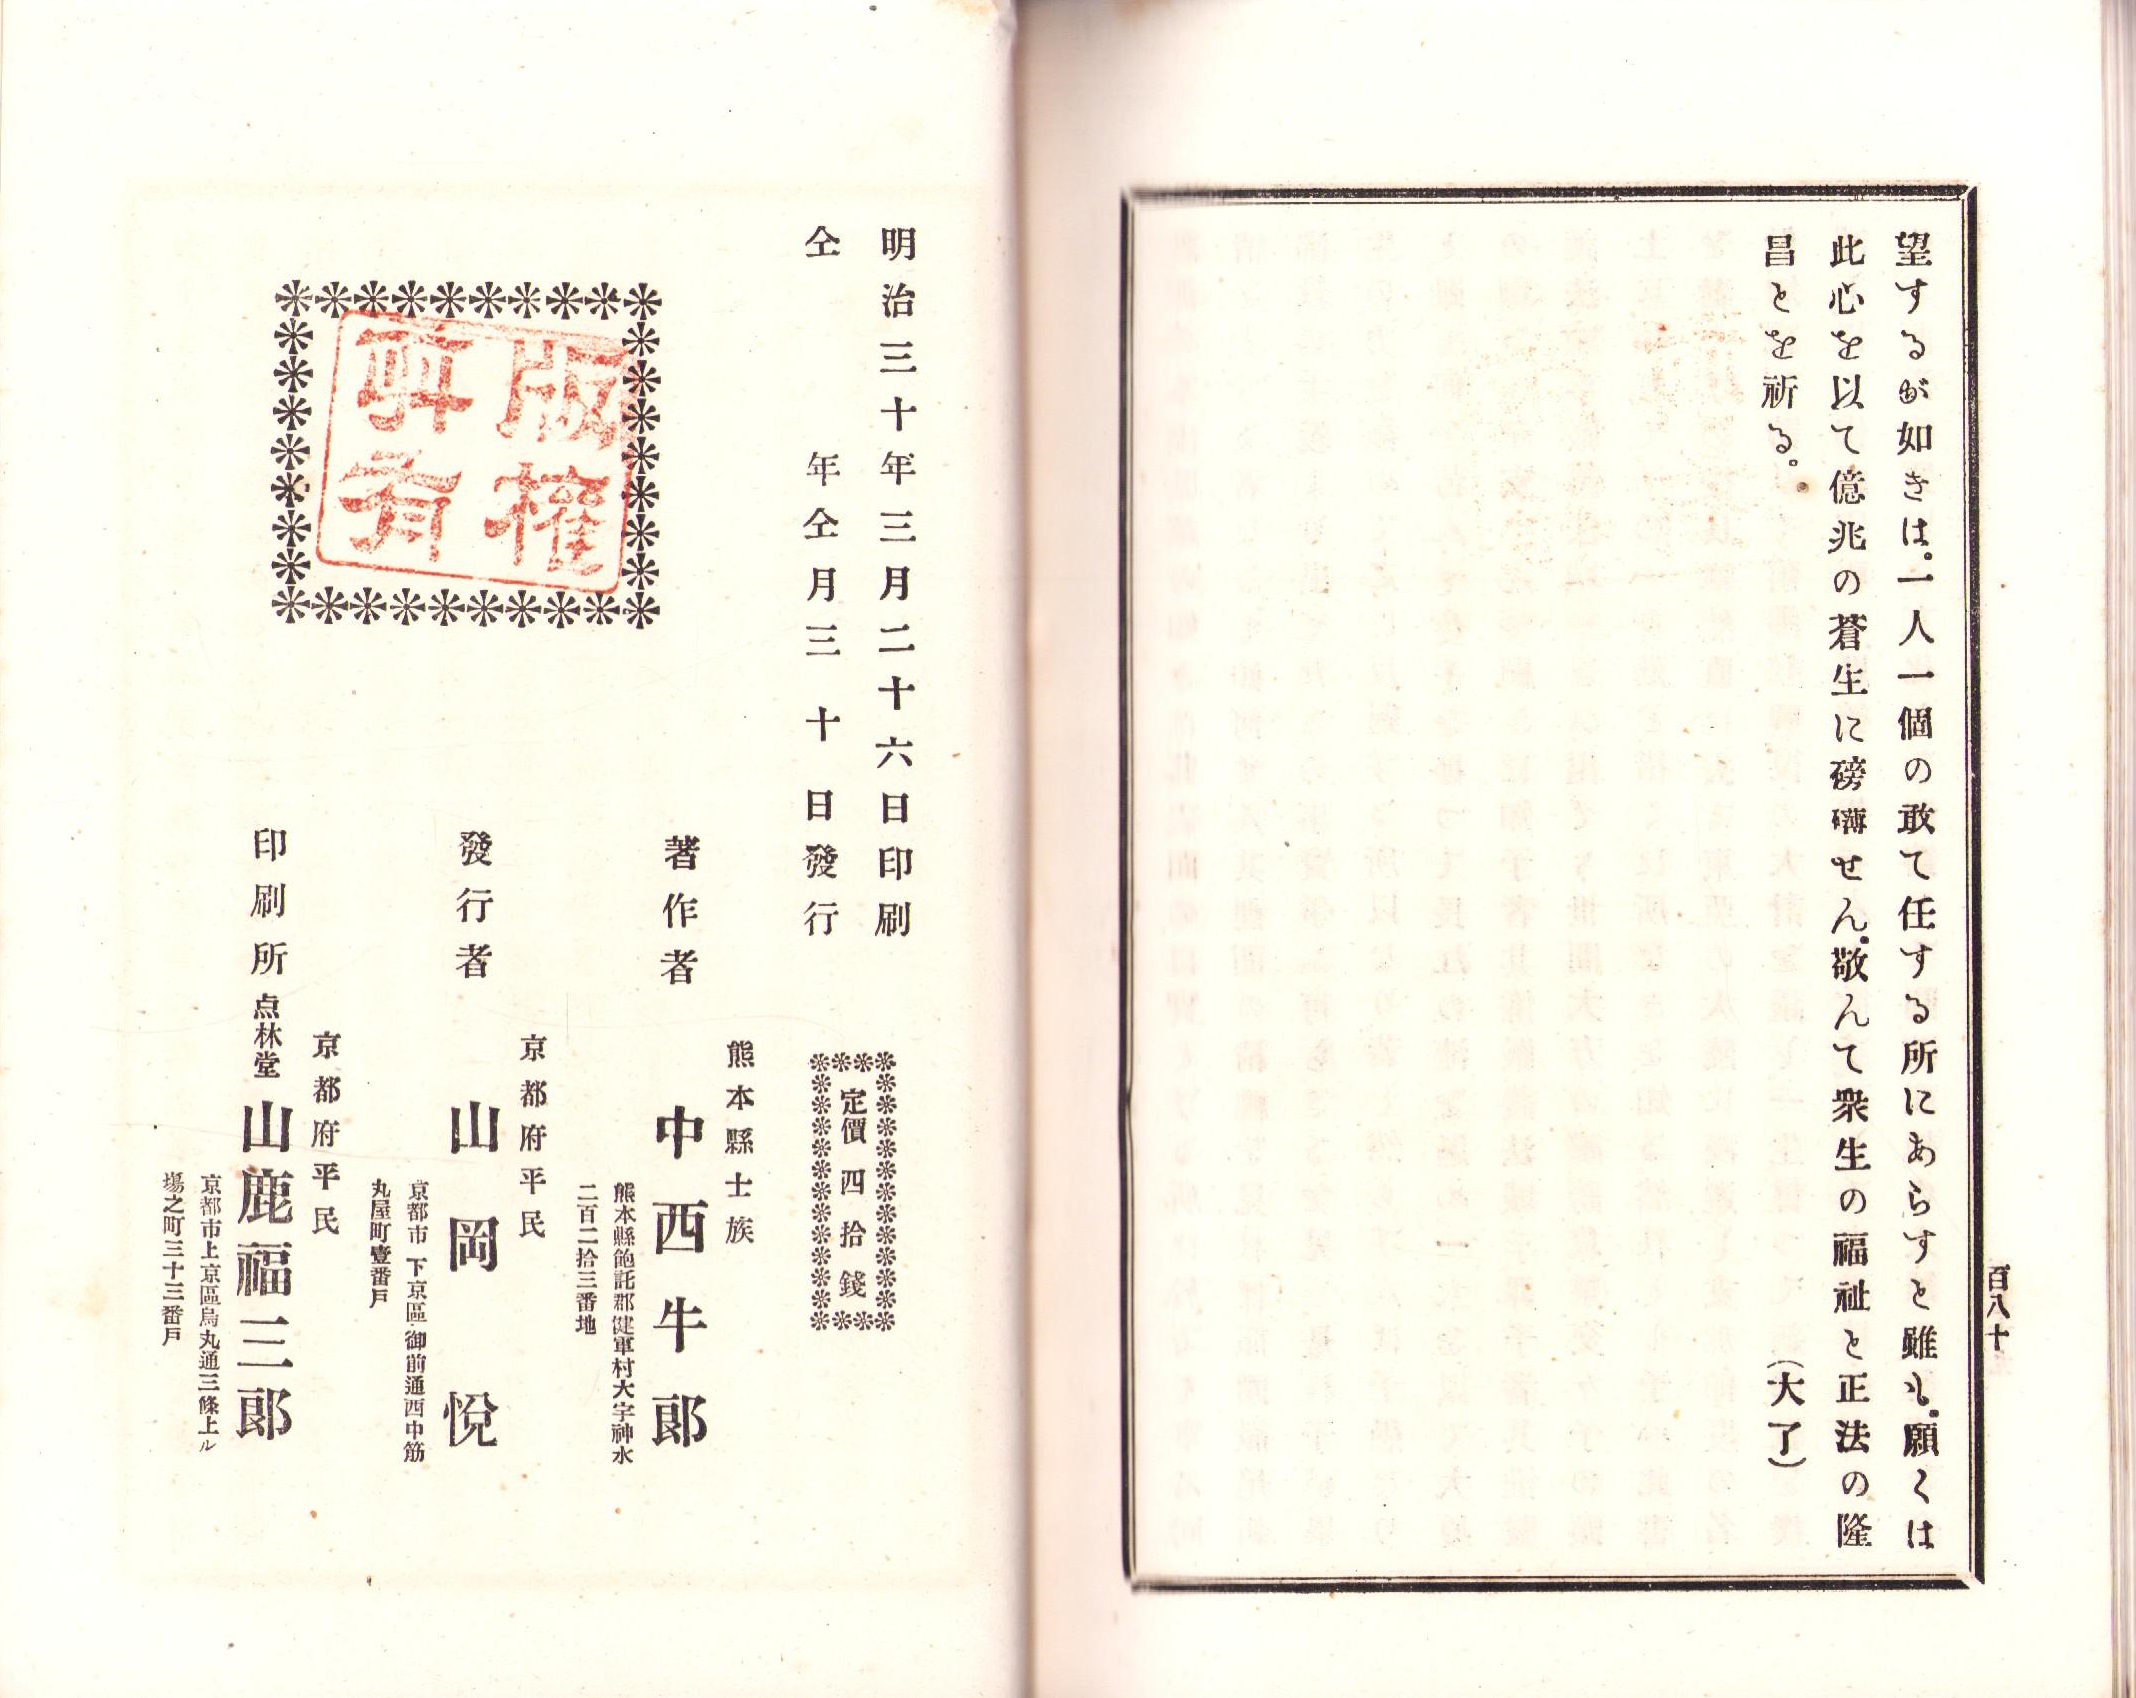 望するが如きは。一人一個の敢て任する所にあらすと雖も。願くは
此心を以て億兆の蒼生に磅礴せん。敬んて衆生の福祉と正法の隆
昌とを祈る。
（大了）
百八十
明治三十年三月二十六日印刷
仝年仝月三十日發行
定價四拾錢
版權
所有
熊本縣士族
著作者　中西牛郎
熊本縣飽託郡健軍村大字神水
二百二拾三番地
京都府平民
發行者　山岡悅
京都市下京區御前通西中筋
丸屋町壹番戶
京都府平民
印刷所　点林堂　山鹿福三郎
京都市上京區烏丸通三條上ル
場之町三十三番戶